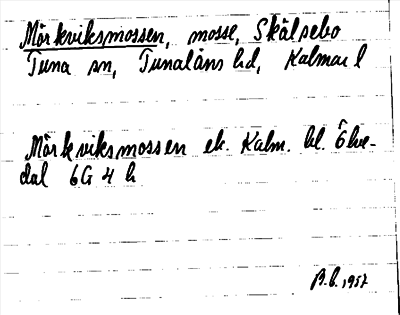 Mörkviksmossen, mosse, Skälsebo
Tuna sn, Tunaläns hd, Kalmar l
Mörkviksmossen ek. Kalm. bl.
dal 6G 4 h
1957